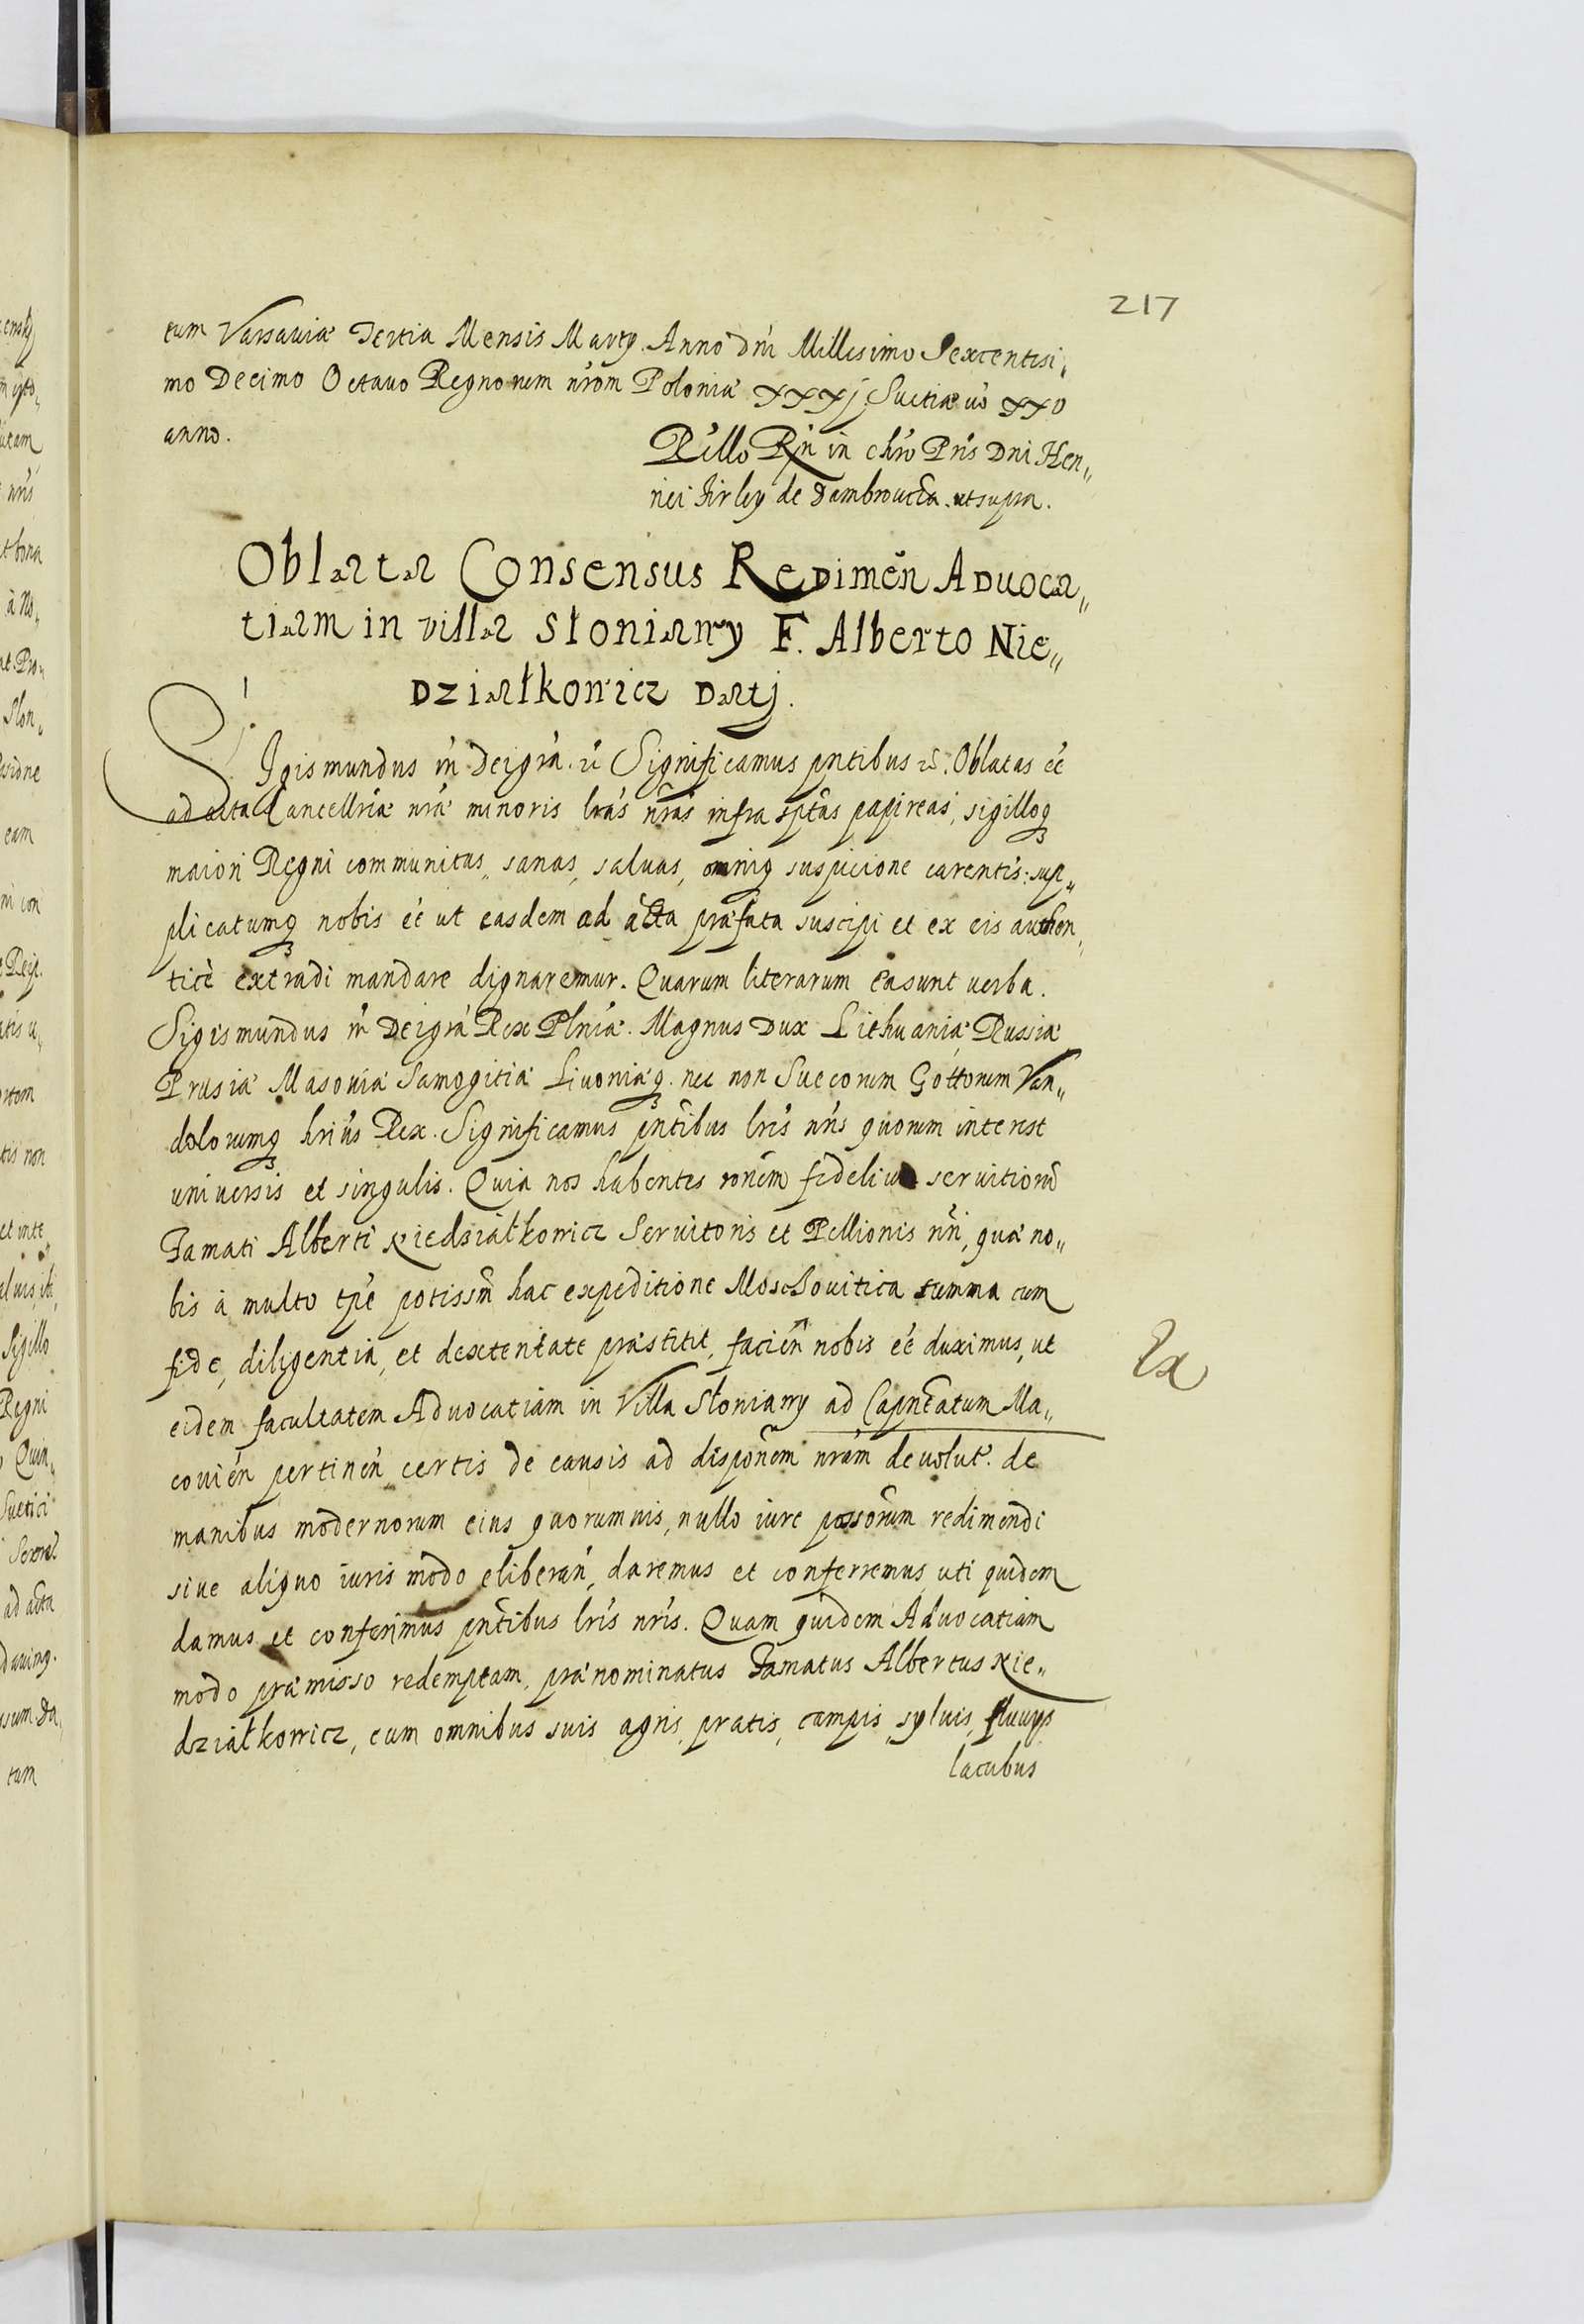 217
tum Varsaviæ Tertia Mensis Marty. Anno Dni Millesimo Sexcentesi„
mo Decimo Octavo Regnorum nrõm Poloniæ XXXj. Suetiæ vo XXV
anno.
Rillo Rn in chro Pris Dni Hen„
rici Firley de Dambrowicza. ut supra.
Oblata Consensus Redimen̄ Aduoca„
tiam in villa Słoniawy F. Alberto Nie„
działkowicz Datj.
SIgismundus III Dei gra. Significamus pntibus. Oblatas eé
ad acta Cancellriæ nræ minoris lras nras infra sptas papireas, sigilloq3
maiori Regni communitas, sanas, saluas, omniq3 suspicione carentes: sup„
plicatumq3 nobis eé ut easdem ad acta præfata suscipi et ex eis authen„
ticè extradi mandare dignaremur. Quarum literarum ea sunt uerba.
Sigismundus III Dei grà Rex Plniæ. Magnus Dux Lithuaniæ Russiæ
Prusiæ Masoviæ Samogitiæ Livoniæq3. nec non Suecorum Gottorum Van„
dolorumq3 hrius Rex. Significamus pntibus lris nris quorum interest
universis et singulis. Quia nos habentes ronem fidelium seruitiorũ
Famati Alberti Niedziałkowicz Seruitoris et Pellionis nri, quæ no„
bis à multo tpe potissm hac expeditione Moschouitica summa cum
fide, diligentia, et dexteritate præstitit, facien nobis eé duximus, ut
Ex
eidem facultatem Aduocatiam in Villa Słoniawy ad Capneatum Ma„
covien pertinen certis de causis ad disponem nram devolut. de
manibus modernorum eius quorumuis, nullo iure possorum redimendi
siue aliquo iuris modo eliberan, daremus et conferremus uti quidem
damus et conferimus pntibus lris nris. Quam quidem Aduocatiam
modo præmisso redemptam, prænominatus Famatus Albertus Nie„
działkowicz, cum omnibus suis agris, pratis, campis, sylvis, fluuys
lacubus